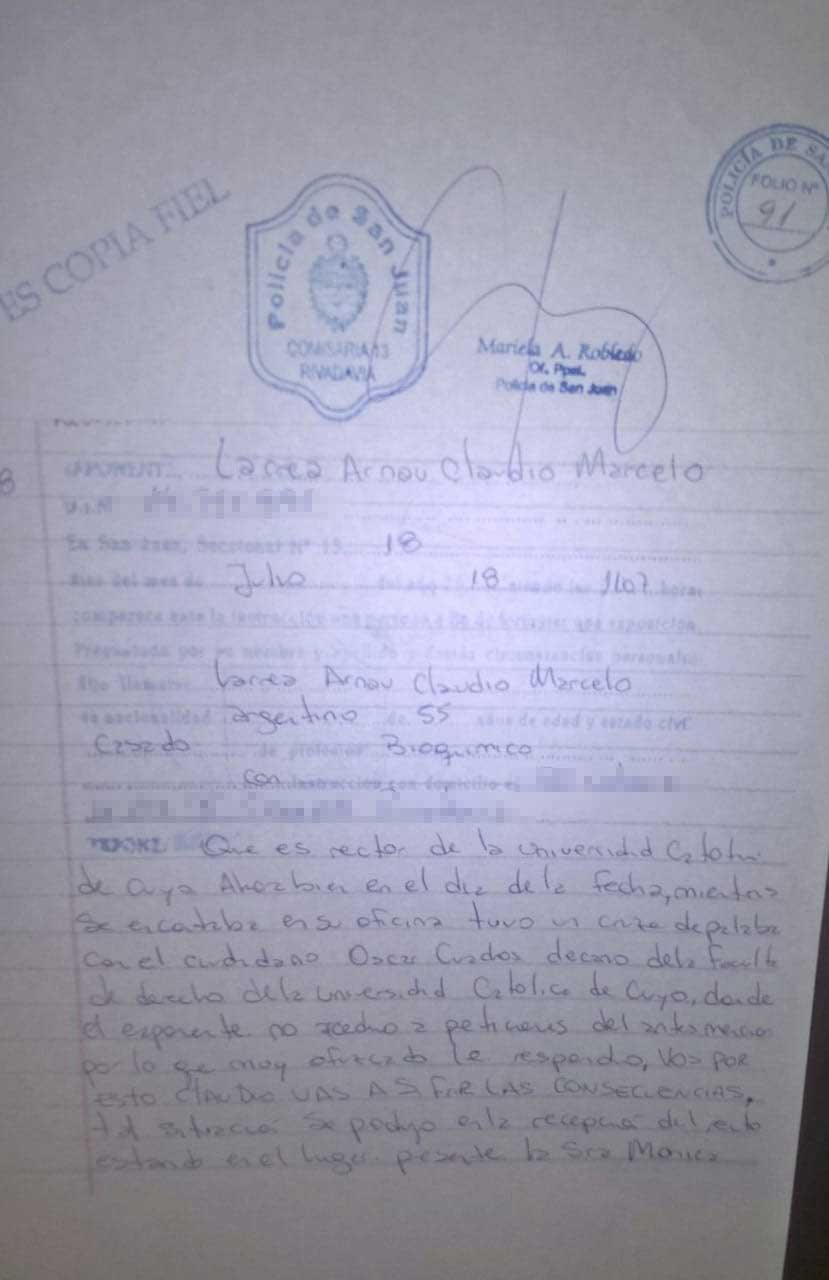 POLICÍA DE SA
FOLIO Nº
91
ES COPIA FIEL
Policia de San Juan
COMISARIA 13
RIVADAVIA
Mariela A. Robledo
Of. Ppal.
Policia de San Juan
8
Larrea Arnau Claudio Marcelo
En San Juan, Seccional Nº 13 18
dias del mes de Julio del año 18 siendo las 1107 horas
comparece ante la instrucción una persona a fin de formular una exposición.
Preguntado por su nombre y apellido y demás circunstancias personales
dijo llamarse Larrea Arnau Claudio Marcelo
de nacionalidad argentino de 55 años de edad y estado civil
Casado de profesión Bioquimico
con instrucción con domicilio en
EXPONE Que es rector de la Universidad Catolica
de Cuyo Ahora bien en el dia de la fecha, mientras
se encontraba en su oficina tuvo un cruce de palabra
con el ciudadano Oscar Cuadros decano de la Facult
de derecho de la universidad Catolica de Cuyo, donde
el exponente no accedio a peticiones del
por lo que muy ofuscado le respondio, VOS POR
ESTO CLAUDIO VAS A SUFRIR LAS CONSECUENCIAS,
tal situacion se produjo en la recepcion del
estando en el lugar presente la Sra Monica